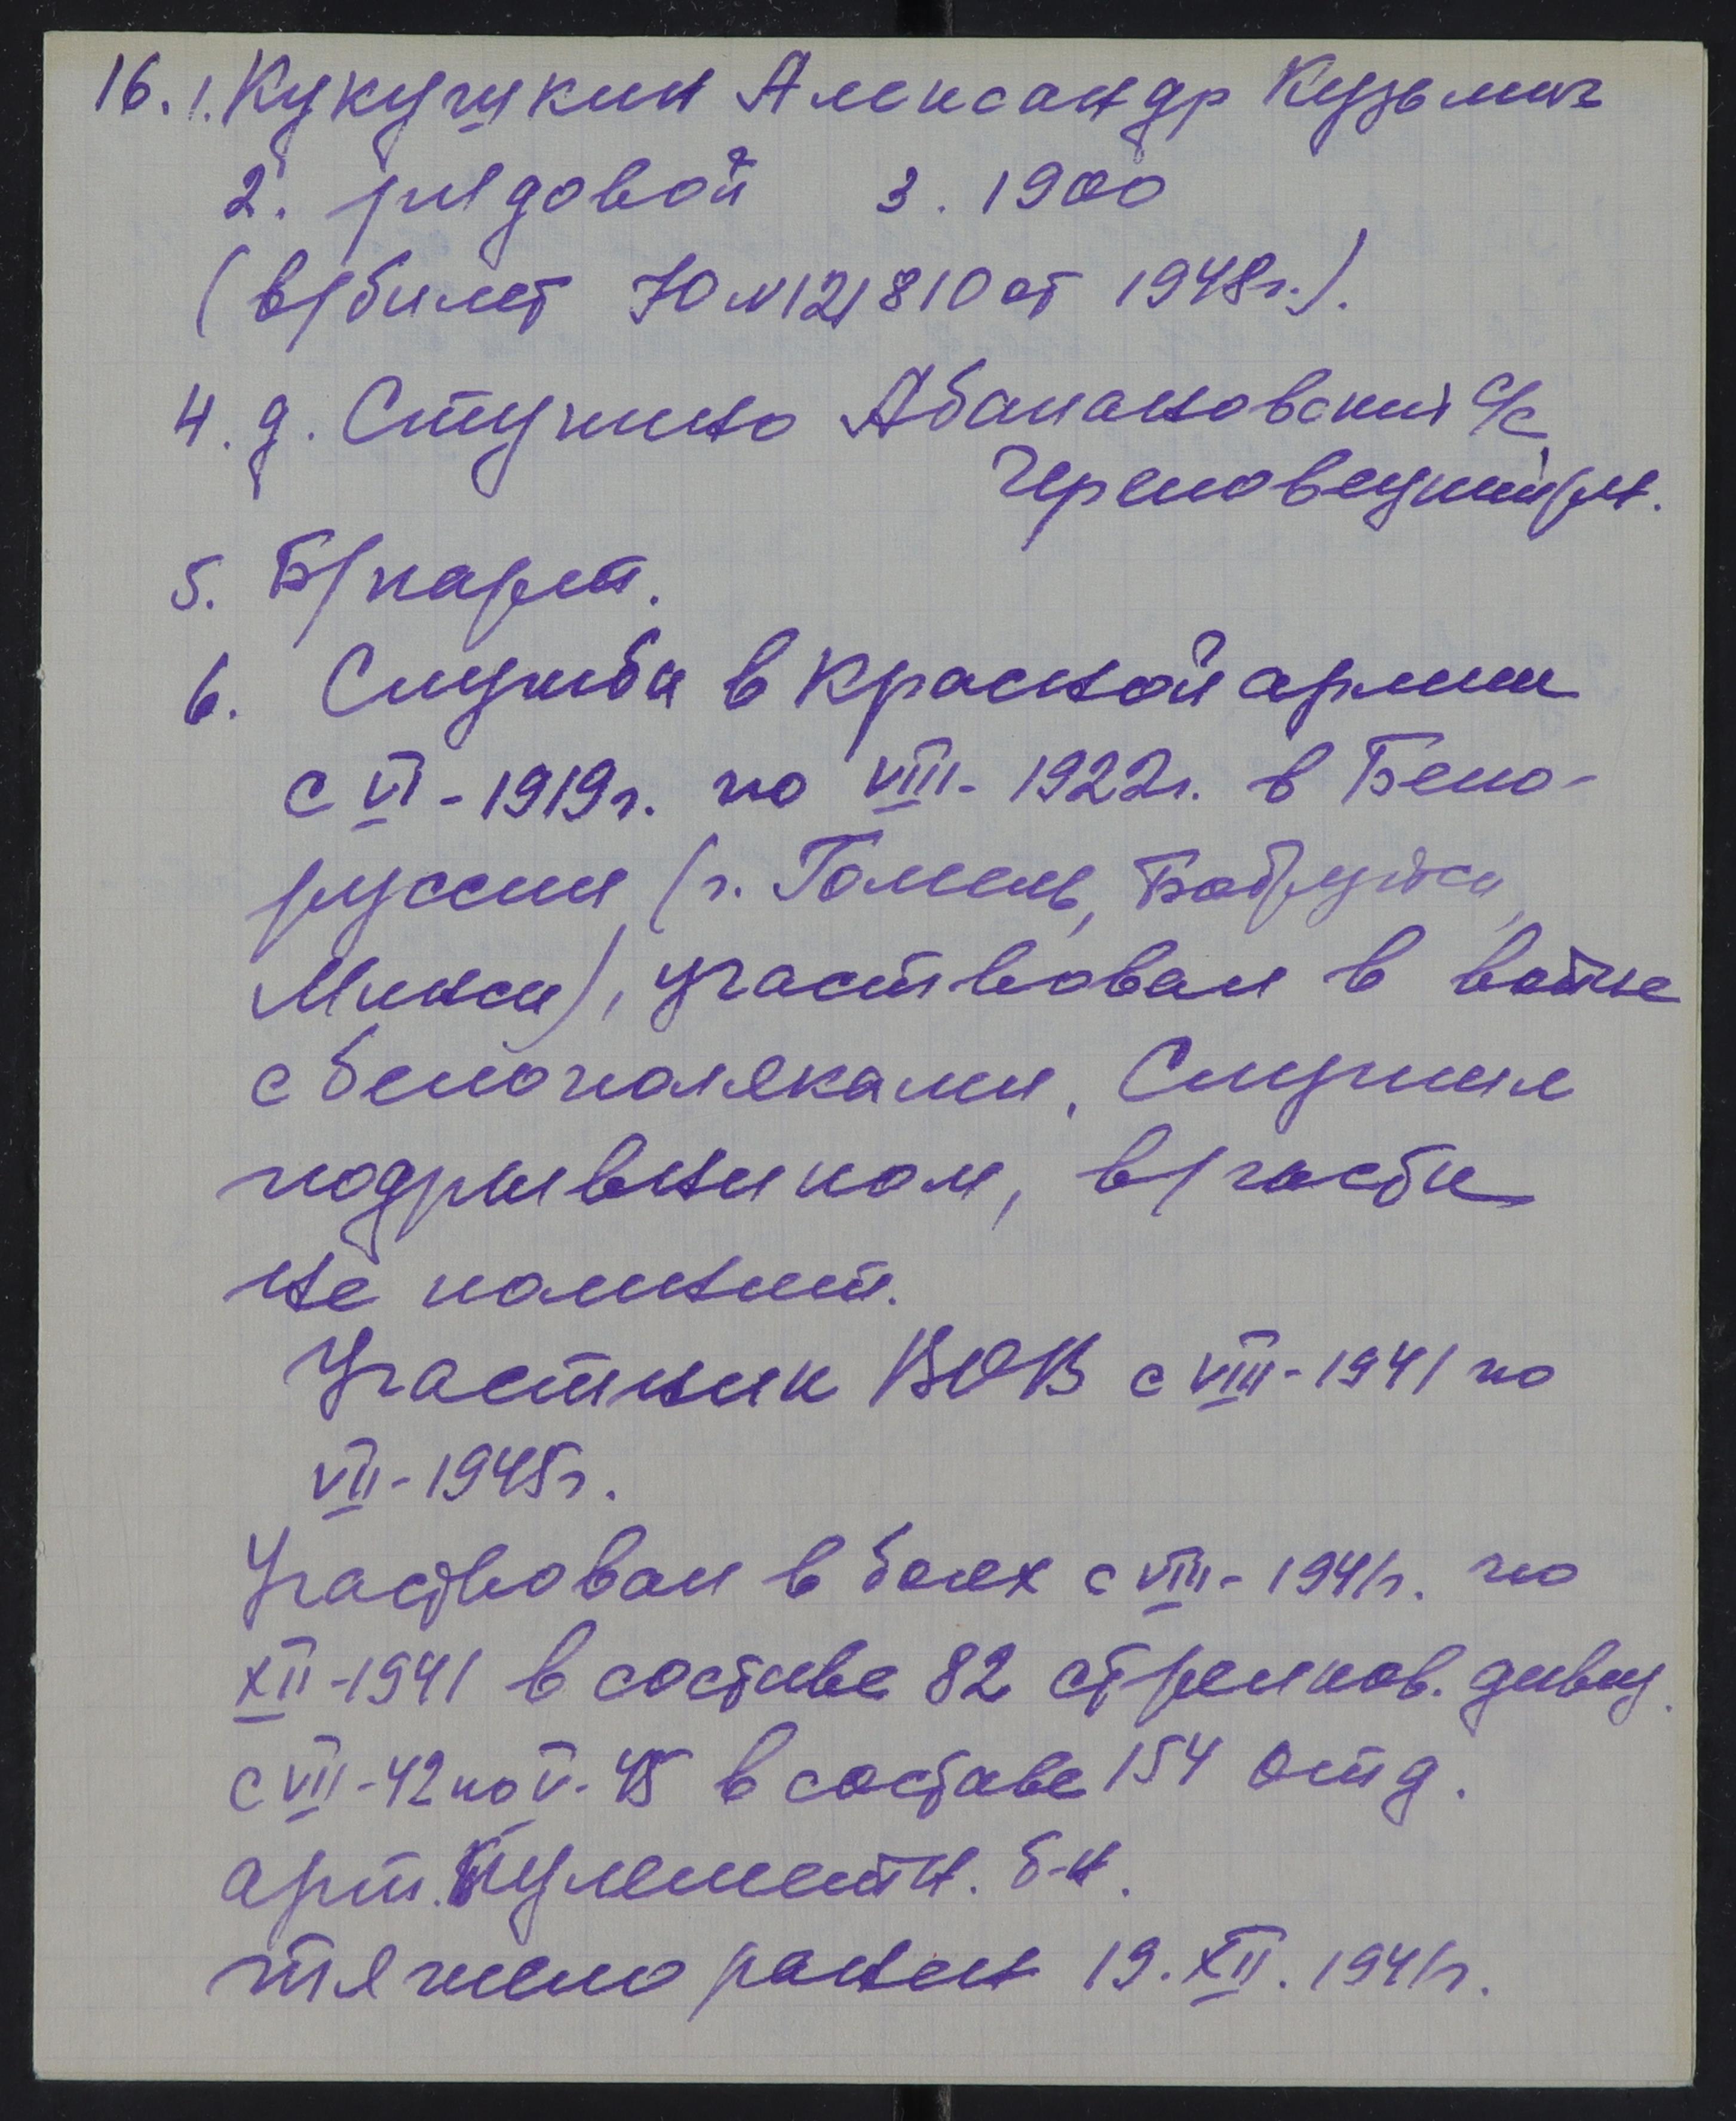 16. 1. Кукушкин Александр Кузьмич
2. рядовой 3. 1900
(в/билет Ю N 121810 от 1948г.).
4. д. Ступино Абакановский с/с
Череповецкий р-н.
5. Б/парт.
6. Служба в красной армии
с VI-1919г. по VIII-1922г. в Бело-
руссии (г. Гомель, Бобруйск,
Минск), участвовал в войне
с белополяками. Служил
подрывником, в/части
не помнит.
Участник ВОВ с VIII-1941 по
VII-1945г.
Участвовал в боях с VIII-1941г. по
XII-1941 в составе 82 стрелков. дивиз.
с VII-42 по V-45 в составе 154 отд.
арт. пулеметн. б-н.
тяжело ранен 19.XII.1941г.